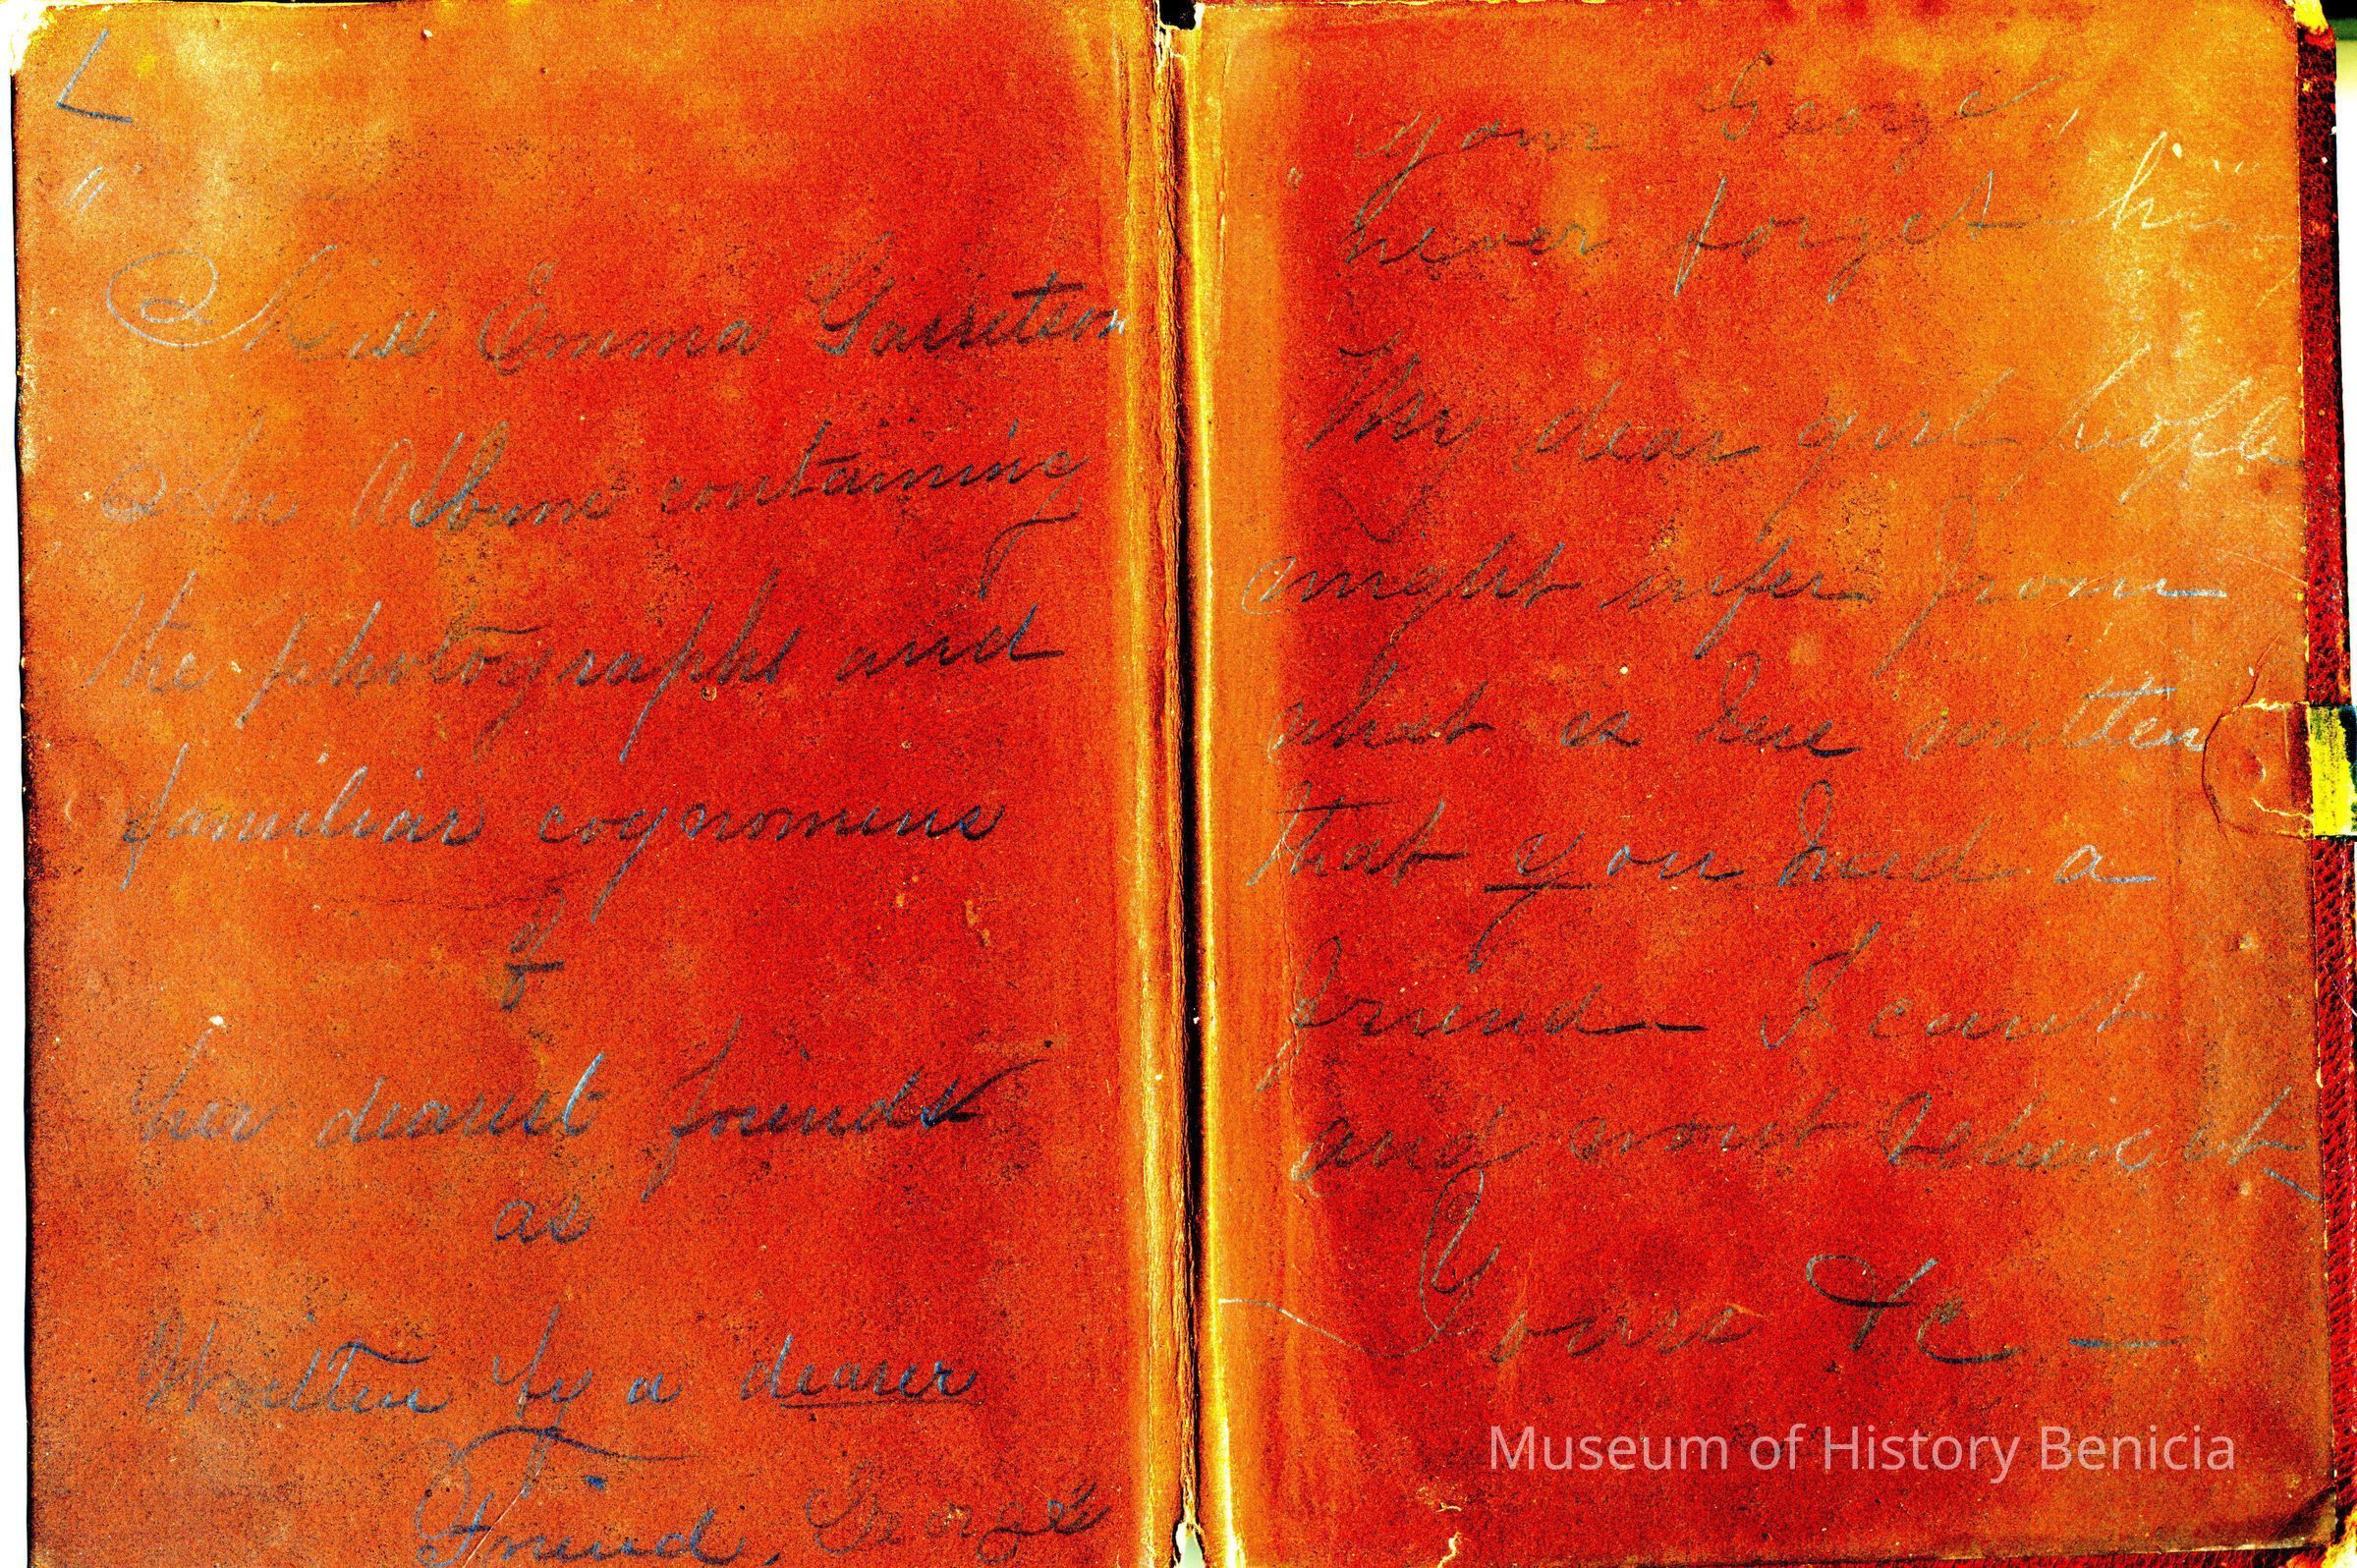 Miss Emma Garretson
An Album containing
the photographs and
familiar cognomens
of
her dearest friends
as
Written by a dearer
Friend, George
your George
never forget
My dear girl people
might infer from
what is here written
that you had a
friend — I cant
and wont believe it
Yours &c —
Museum of History Benicia